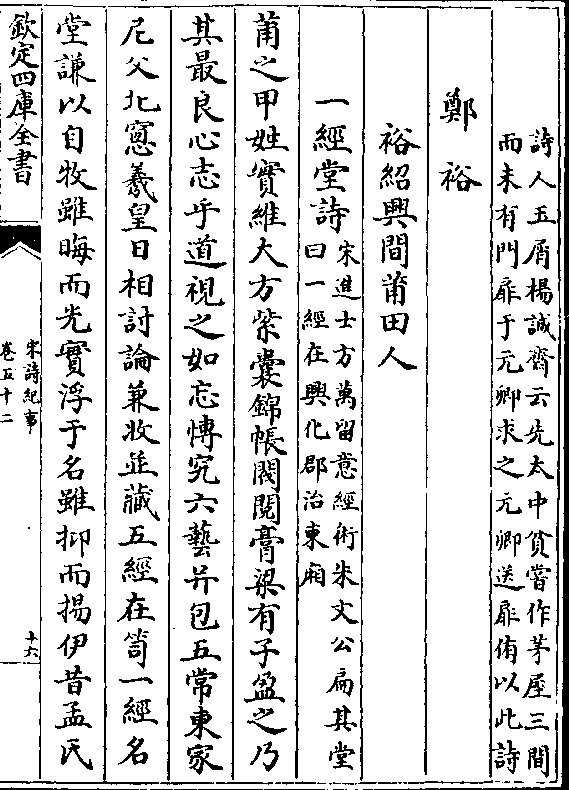 詩人玉屑楊誠齋云先太中貧嘗作茅屋三間
而未有門扉于元卿求之元卿送扉侑以此詩
鄭裕
裕紹興間莆田人
一經堂詩
宋進士方萬留意經術朱文公扁其堂
曰一經在興化郡治東廂
莆之甲姓實維大方紫囊錦帳閥閱膏粱有子盈之乃
其最良心志乎道視之如忘慱究六藝并包五常東家
尼父北窻羲皇日相討論兼收並藏五經在笥一經名
堂謙以自牧雖晦而光實浮于名雖抑而揚伊昔孟氏
欽定四庫全書
宋詩紀事
卷五十二
十六